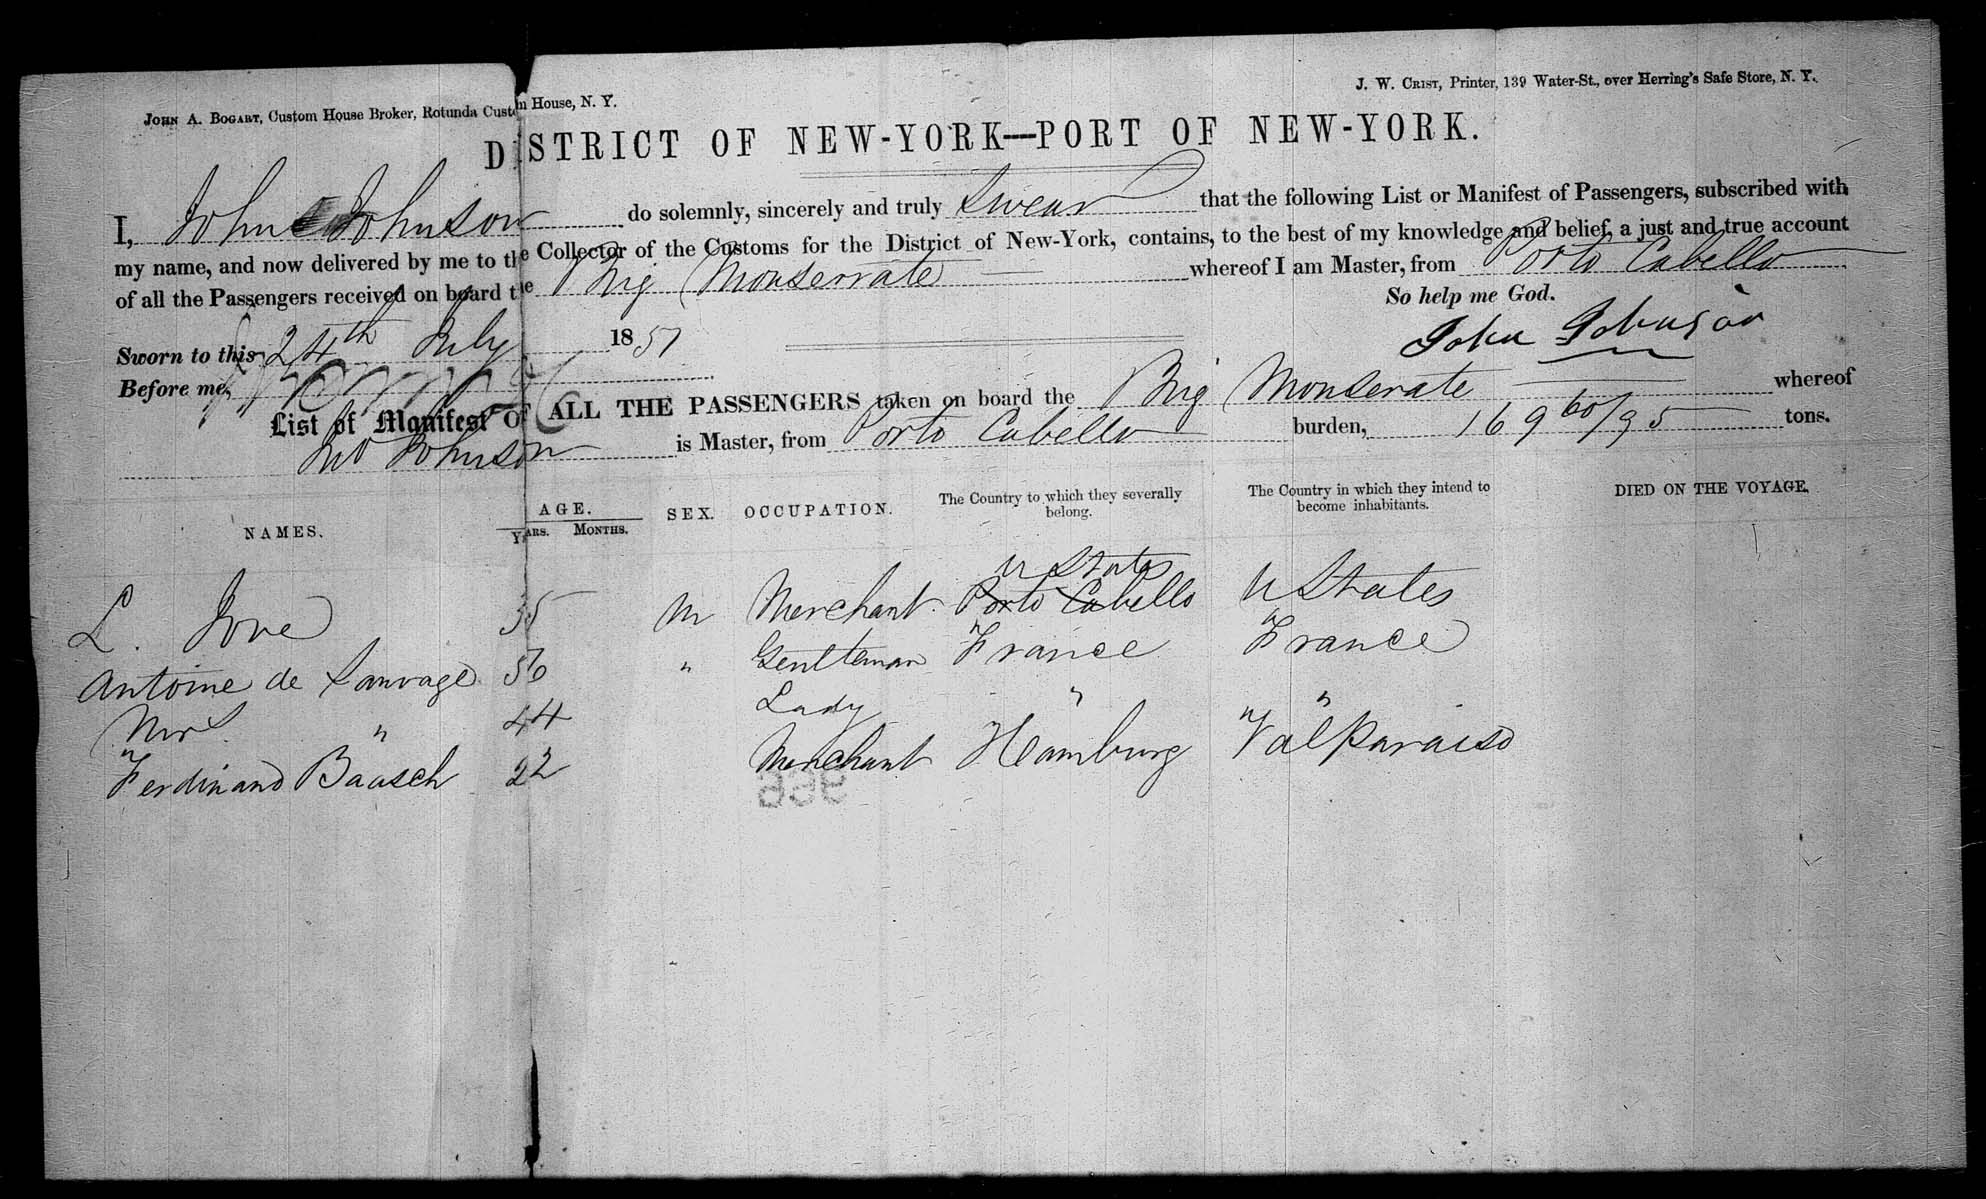 JOHN A. BOGART, Custom House Broker, Rotunda Custom House, N. Y.
J. W. CRIST, Printer, 139 Water-St., over Herring's Safe Store, N. Y.
DISTRICT OF NEW-YORK—PORT OF NEW-YORK.
I, John Johnson do solemnly, sincerely and truly swear that the following List or Manifest of Passengers, subscribed with
my name, and now delivered by me to the Collector of the Customs for the District of New-York, contains, to the best of my knowledge and belief, a just and true account
of all the Passengers received on board the Brig Monserrate whereof I am Master, from Porto Cabello
So help me God.
Sworn to this 24th July 1851
John Johnson
Before me,
List or Manifest OF ALL THE PASSENGERS taken on board the Brig Monserate whereof
Jno Johnson is Master, from Porto Cabello burden, 169 60/95 tons.
NAMES. AGE. SEX. OCCUPATION. The Country to which they severally belong. The Country in which they intend to become inhabitants. DIED ON THE VOYAGE.
YEARS. MONTHS.
U States
L. Jove 35 M Merchant Porto Cabello U States
Antoine de Sauvage 56 " Gentleman France France
Mrs " 44 Lady " "
Ferdinand Baasch 22 Merchant Hamburg Valparaiso